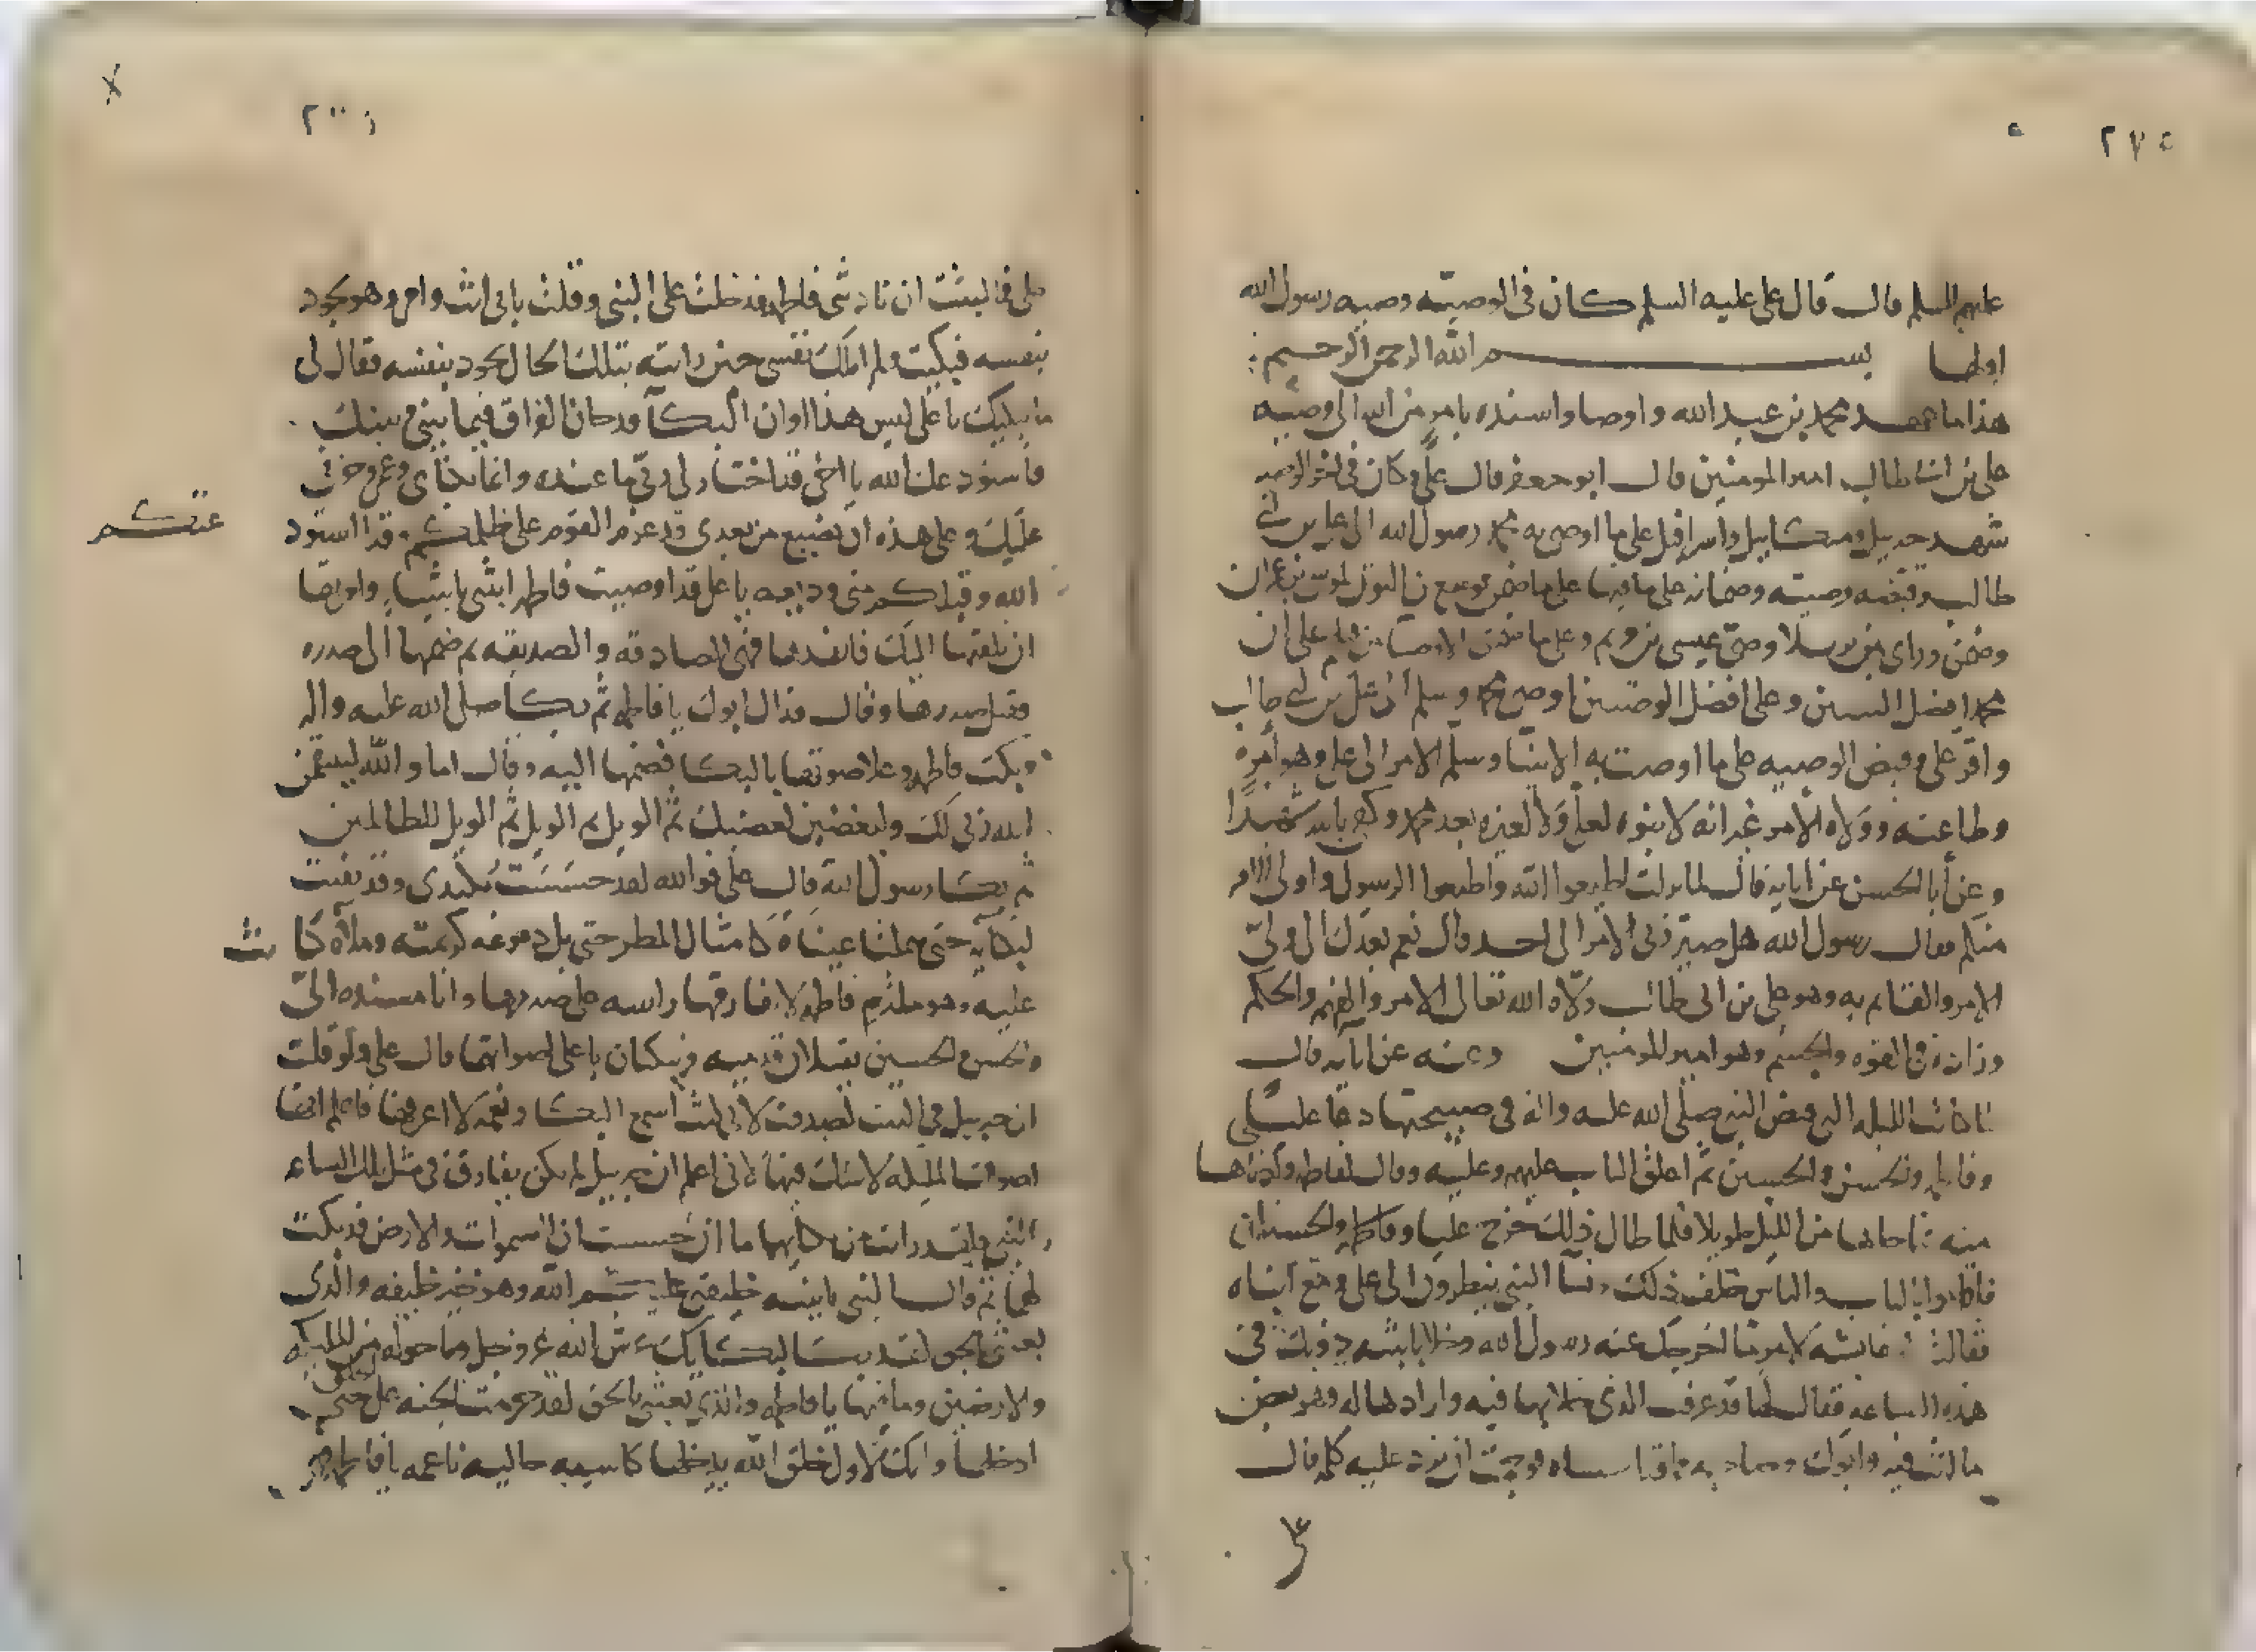 ٢٧٥
عليهم السلم قال قال على عليه السلم كان فى الوصيه وصيه رسول الله
اولها بسم الله الرحمن الرحيم
هذا ما عهد محمد بن عبد الله واوصا واسنده بامر من الله الى وصيه
على بن ابى طالب امير المومنين قال ابو جعفر قال على وكان فى اخر الوصيه
شهد جبريل وميكاييل واسرافيل على ما اوصى به محمد رسول الله الى على بن ابى
طالب وقبضه وصيته وضمانه على ما فيها على ما ضمن يوشع بن النون لموسى بن عمران
وضمن ورى بن برملا وصى عيسى بن مريم وعلى ما ضمن الاوصيا من قبلهم على ان
محمدا افضل النبيين وعلى افضل الوصيين اوصى محمد وسلم الى على بن ابى طالب
واقر على وقبض الوصيه على ما اوصت به الانبيا وسلم الامر الى على وهو امره
وطاعته وولاه الامر غير انه لا نبوه لعلى ولا لغيره بعد محمد وكفى بالله شهيدا
وعن أبا الحسن عن ابايه قال لما نزلت اطيعوا الله واطيعوا الرسول واولى الامر
منكم فقال رسول الله هل صيرنى الامر الى احد قال نعم بعدك الى ولى
الامر والقايم به وهو على بن ابى طالب ولاه الله تعالى الامر والفهم والحكم
وزاده فى القوه والجسم وهو امير المومنين وعنه عن ابايه قال
لما كانت الليله التى قبض النبى صلى الله عليه واله فى صبيحتها دعا عليا
وفاطمه والحسن والحسين ثم اغلق الباب عليهم وعليه وقال لفاطمه وادناها
منه فناجاها من الليل طويلا فلما طال ذلك خرج عليا وفاطمه والحسنان
فاقاموا بالباب والناس خلف ذلك ونسآ النبى ينظرون الى على ومع ابناه
فقالت عايشه لامر ما اخرجك عنه رسول الله وخلا بابنته دونك فى
هذه الساعه فقال لها قد عرفت الذى خلا بها فيه وارادها له وهو بعض
ما كنت فيه وابوك وصاحبه مما قد سماه فوجمت ان ترد عليه كلمه قال
على فما لبثت ان نادتنى فاطمه فدخلت على النبى وقلت بابى انت وامى وهو يجود
بنفسه فبكيت ولم املك نفسى حين رايته بتلك الحال يجود بنفسه فقال لى
ما يبكيك يا على ليس هذا اوان البكآ وقد حان الفراق فيما بينى وبينك
فاستودعك الله يا اخى فقد اختار لى ربى ما عنده وانما بكآى وغمى وحزنى
عليك وعلى هذه ان تضيع من بعدى وقد عزم القوم على ظلمكم وقد استود
عتكم
الله وقبلكم منى وديعه يا على قد اوصيت فاطمه ابنتى باشيا وامرتها
ان تلقيها اليك فانفذها فهى الصادقه والصديقه ثم ضمها الى صدره
فقبل صدرها وقال فداك ابوك يا فاطمه ثم بكا صلى الله عليه واله
وبكت فاطمه وعلا صوتها بالبكا فضمها اليه وقال اما والله لينتقمن
الله ربى لك وليغضبن لغضبك ثم الويل ثم الويل ثم الويل للظالمين
ثم بكا رسول الله قال على فوالله لقد حسست بكبدى وقد تفتت
لبكآيه حتى هملتا عيناه كامثال المطر حتى بل دموعه كريمته وملآه كانت
عليه وهو ملتزم فاطمه لا يفارقها وراسه على صدرها وانا مسنده الى
والحسن والحسين يقبلان قدميه ويبكيان باعلى اصواتهما قال على ولو قلت
ان جبريل فى البيت لصدقت لانى كنت اسمع البكا ونغمه لا اعرفها فاعلم انها
اصوات الملئكه لا شك فيها لانى اعلم ان جبريل لم يكن يفارق فى مثل تلك الساعه
النبى ولقد رايت من بكآيهما ما ان حسبت ان السموات والارض قد بكت
لهما ثم قال النبى يا بنيه خليفتى عليكم الله وهو خير خليفه والذى
بعثنى بالحق لقد بكا لبكآيك عرش الله عز وجل وما حوله من الملئكه
والارضين وما فيها يا فاطمه والذى بعثنى بالحق لقد حرمت الجنه على حتى
الخلق
ادخلها وانك لاول خلق الله يدخلها كاسيه حاليه ناعمه يا فاطمه